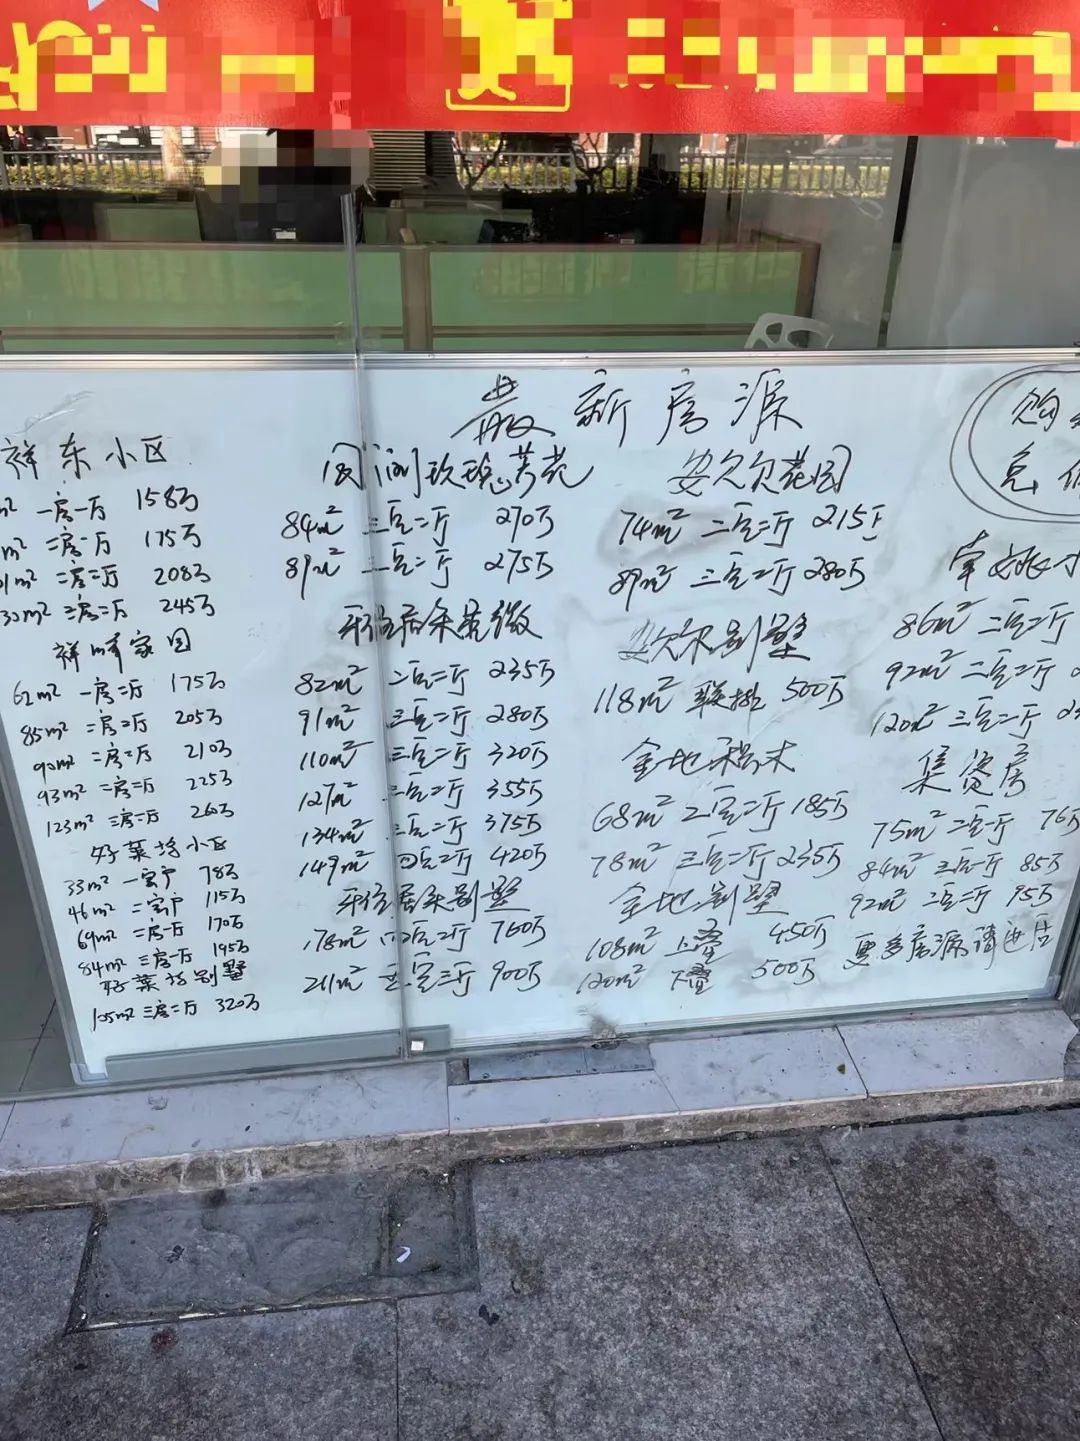 最新房源
祥东小区
m² 一房一厅 158万
m² 二房一厅 175万
91m² 二房二厅 208万
30m² 三房二厅 245万
祥峰家园
62m² 一房二厅 175万
85m² 二房二厅 205万
90m² 二房二厅 210万
93m² 二房二厅 225万
123m² 三房二厅 260万
好莱坞小区
33m² 一室户 78万
46m² 二室户 115万
69m² 二房一厅 170万
84m² 三房一厅 195万
好莱坞别墅
125m² 三房二厅 320万
84m² 三房二厅 270万
89m² 三房二厅 275万
82m² 二房二厅 235万
91m² 三房二厅 280万
110m² 三房二厅 320万
127m² 三房二厅 355万
134m² 三房二厅 375万
149m² 四房二厅 420万
别墅
178m² 四房二厅 760万
211m² 五房三厅 900万
安尔花园
74m² 二房二厅 215万
89m² 三房二厅 280万
别墅
118m² 联排 500万
金地
68m² 二房二厅 185万
78m² 三房二厅 235万
金地别墅
108m² 上叠 450万
120m² 下叠 500万
购
86m² 二房二厅
92m² 二房二厅
120m² 三房二厅
集资房
75m² 二房一厅 76万
84m² 三房一厅 85万
92m² 二房一厅 95万
更多房源请进店